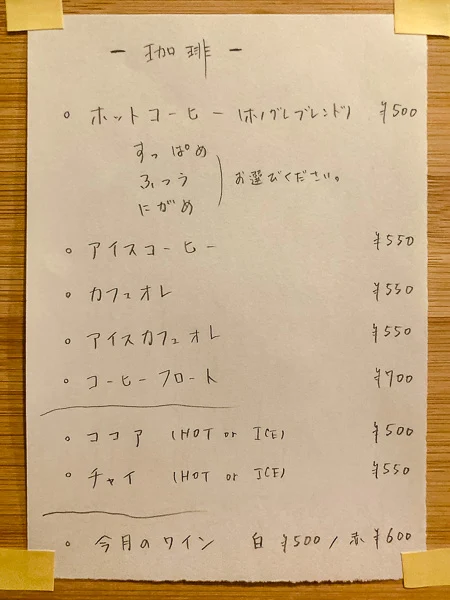 ー 珈琲 ー
○ ホットコーヒー (ホノグレブレンド) ¥500
すっぱめ
ふつう
にがめ
お選びください。
○ アイスコーヒー ¥550
○ カフェオレ ¥550
○ アイスカフェオレ ¥550
○ コーヒーフロート ¥700
○ ココア (HOT or ICE) ¥500
○ チャイ (HOT or ICE) ¥550
○ 今月のワイン 白 ¥500 / 赤 ¥600